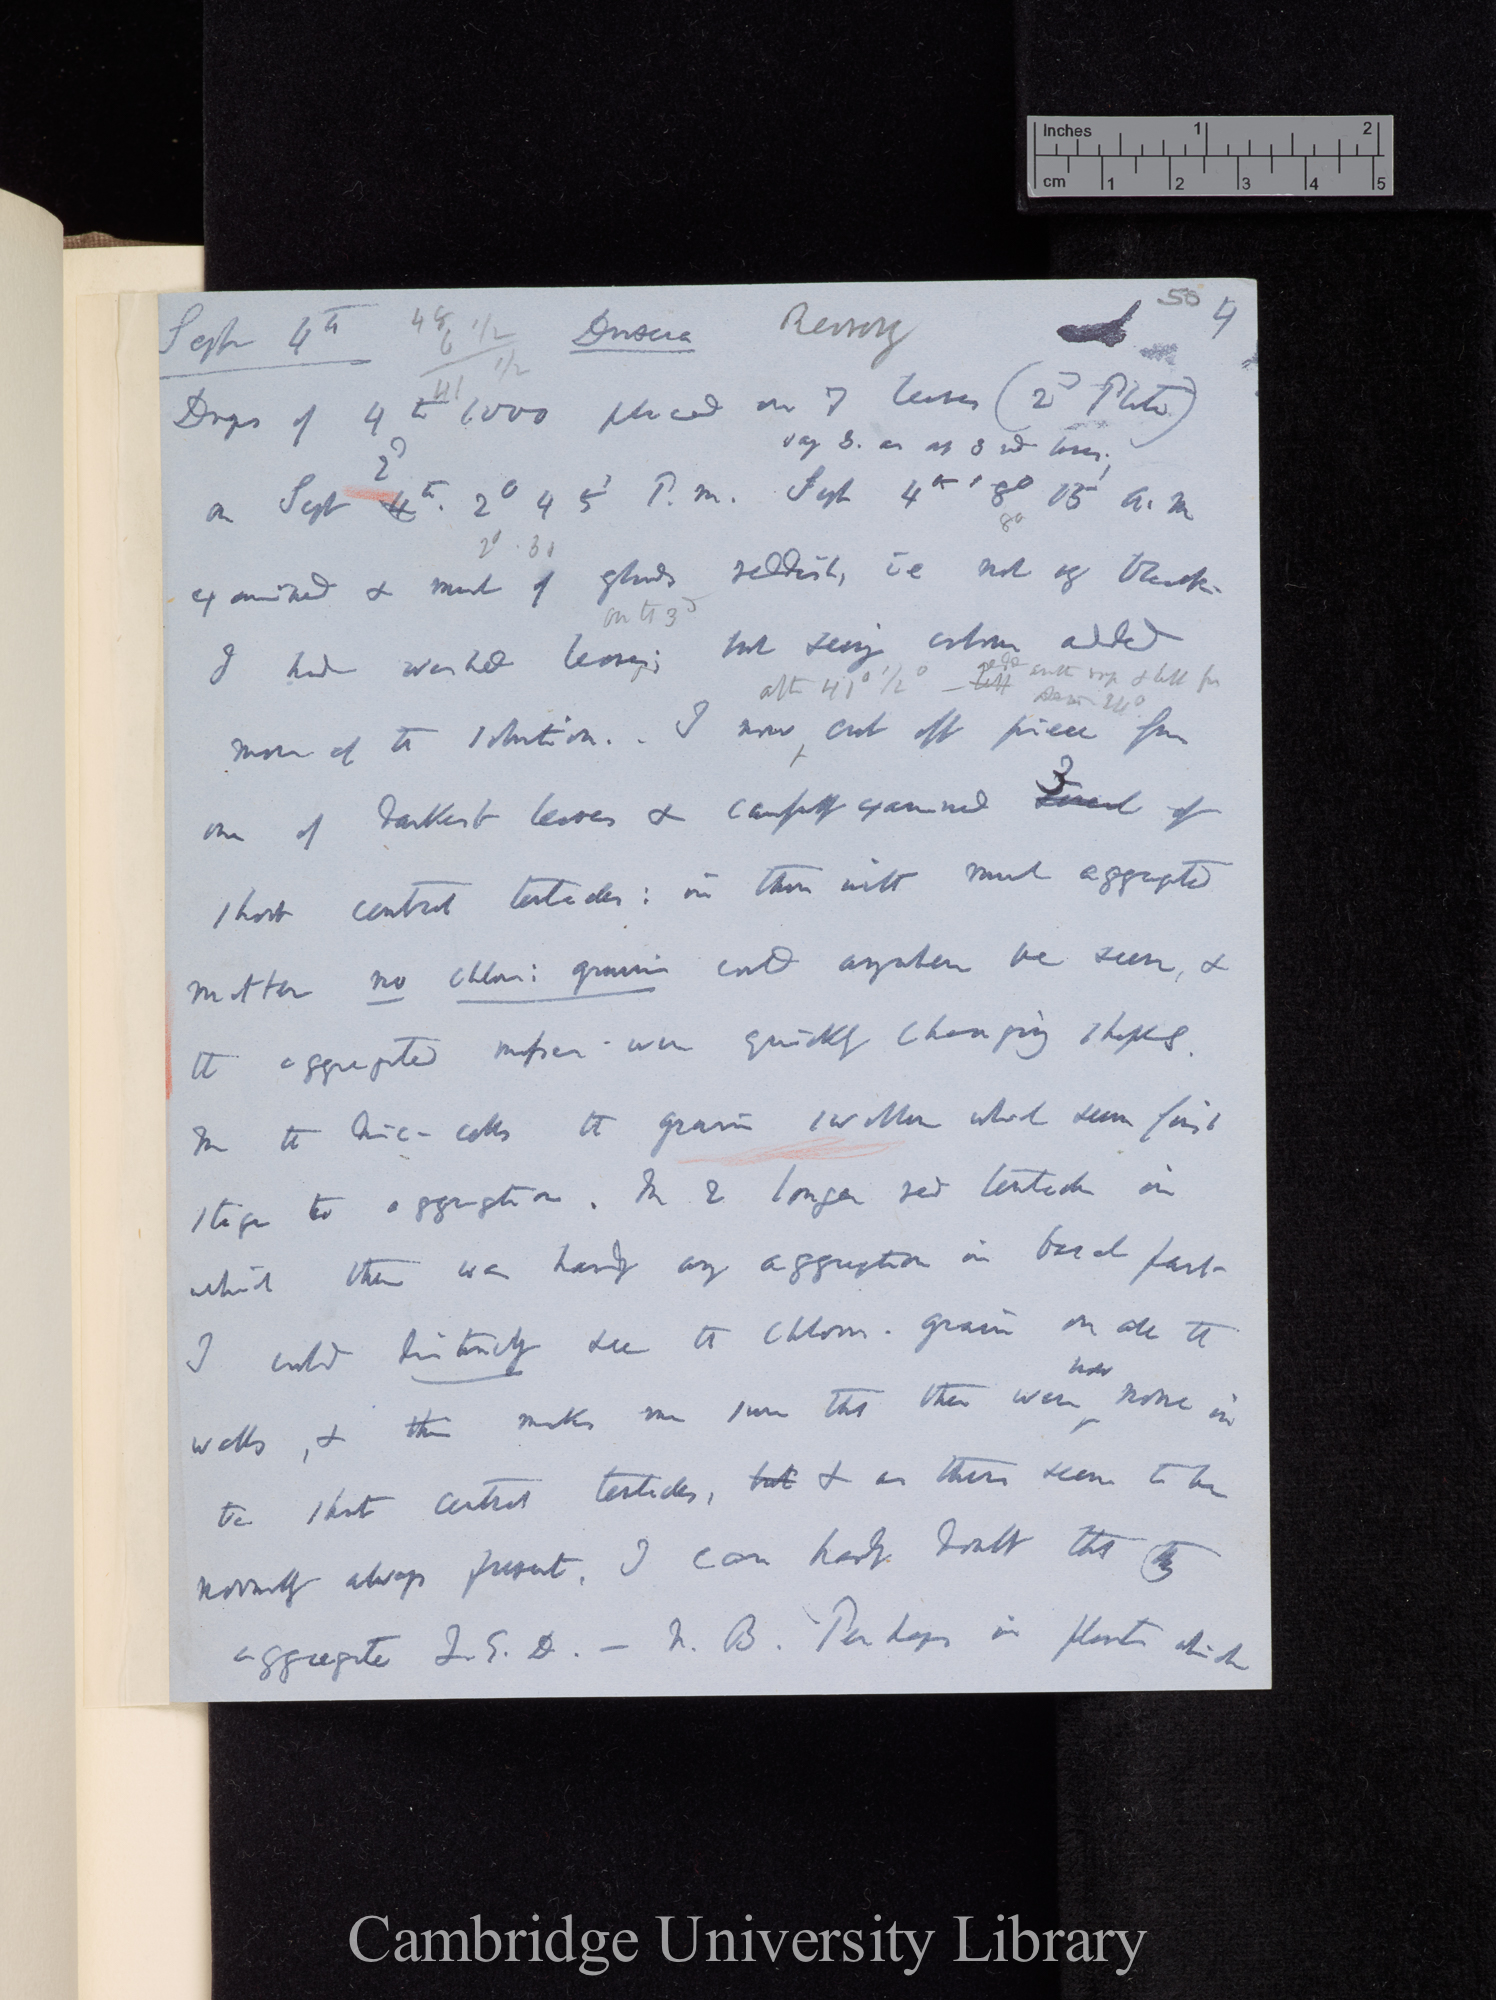 Inches 1 2
cm 1 2 3 4 5
50 4
Sept 4th 48 Drosera
6 1/2
41 1/2
Drops of 4 to 1000 placed on 7 leaves (2d Plate)
say 3. as at 3rd
on Sept 2d 4th. 2° 45' P.m. Sept 4th 8° 15' a.m
2° 30 8°
examined & most of glands reddish, ie not og black.
on the 3d
I had washed leaves; but seeing colour added
after 41° 1/2° — left & left for 24°
more of the solution. . I now, cut off piece from
one of darkest leaves & carefully examined 3 of
short central tentacles: in them with much aggregated
matter no chlor: grains could anywhere be seen, &
the aggregated masses were quickly changing shapes.
In the disc-cells the grains swollen which seem first
stage to aggregation. In 2 longer red tentacles in
which there was hardly any aggregation in basal part
I could distinctly see the chloro. grains on all the
now
walls, & this makes me sure that there were none in
the short central tentacles, but & as these seem to be
normally always present, I can hardly doubt that they
aggregate Q.E.D. — N.B. Perhaps in plants which
Cambridge University Library